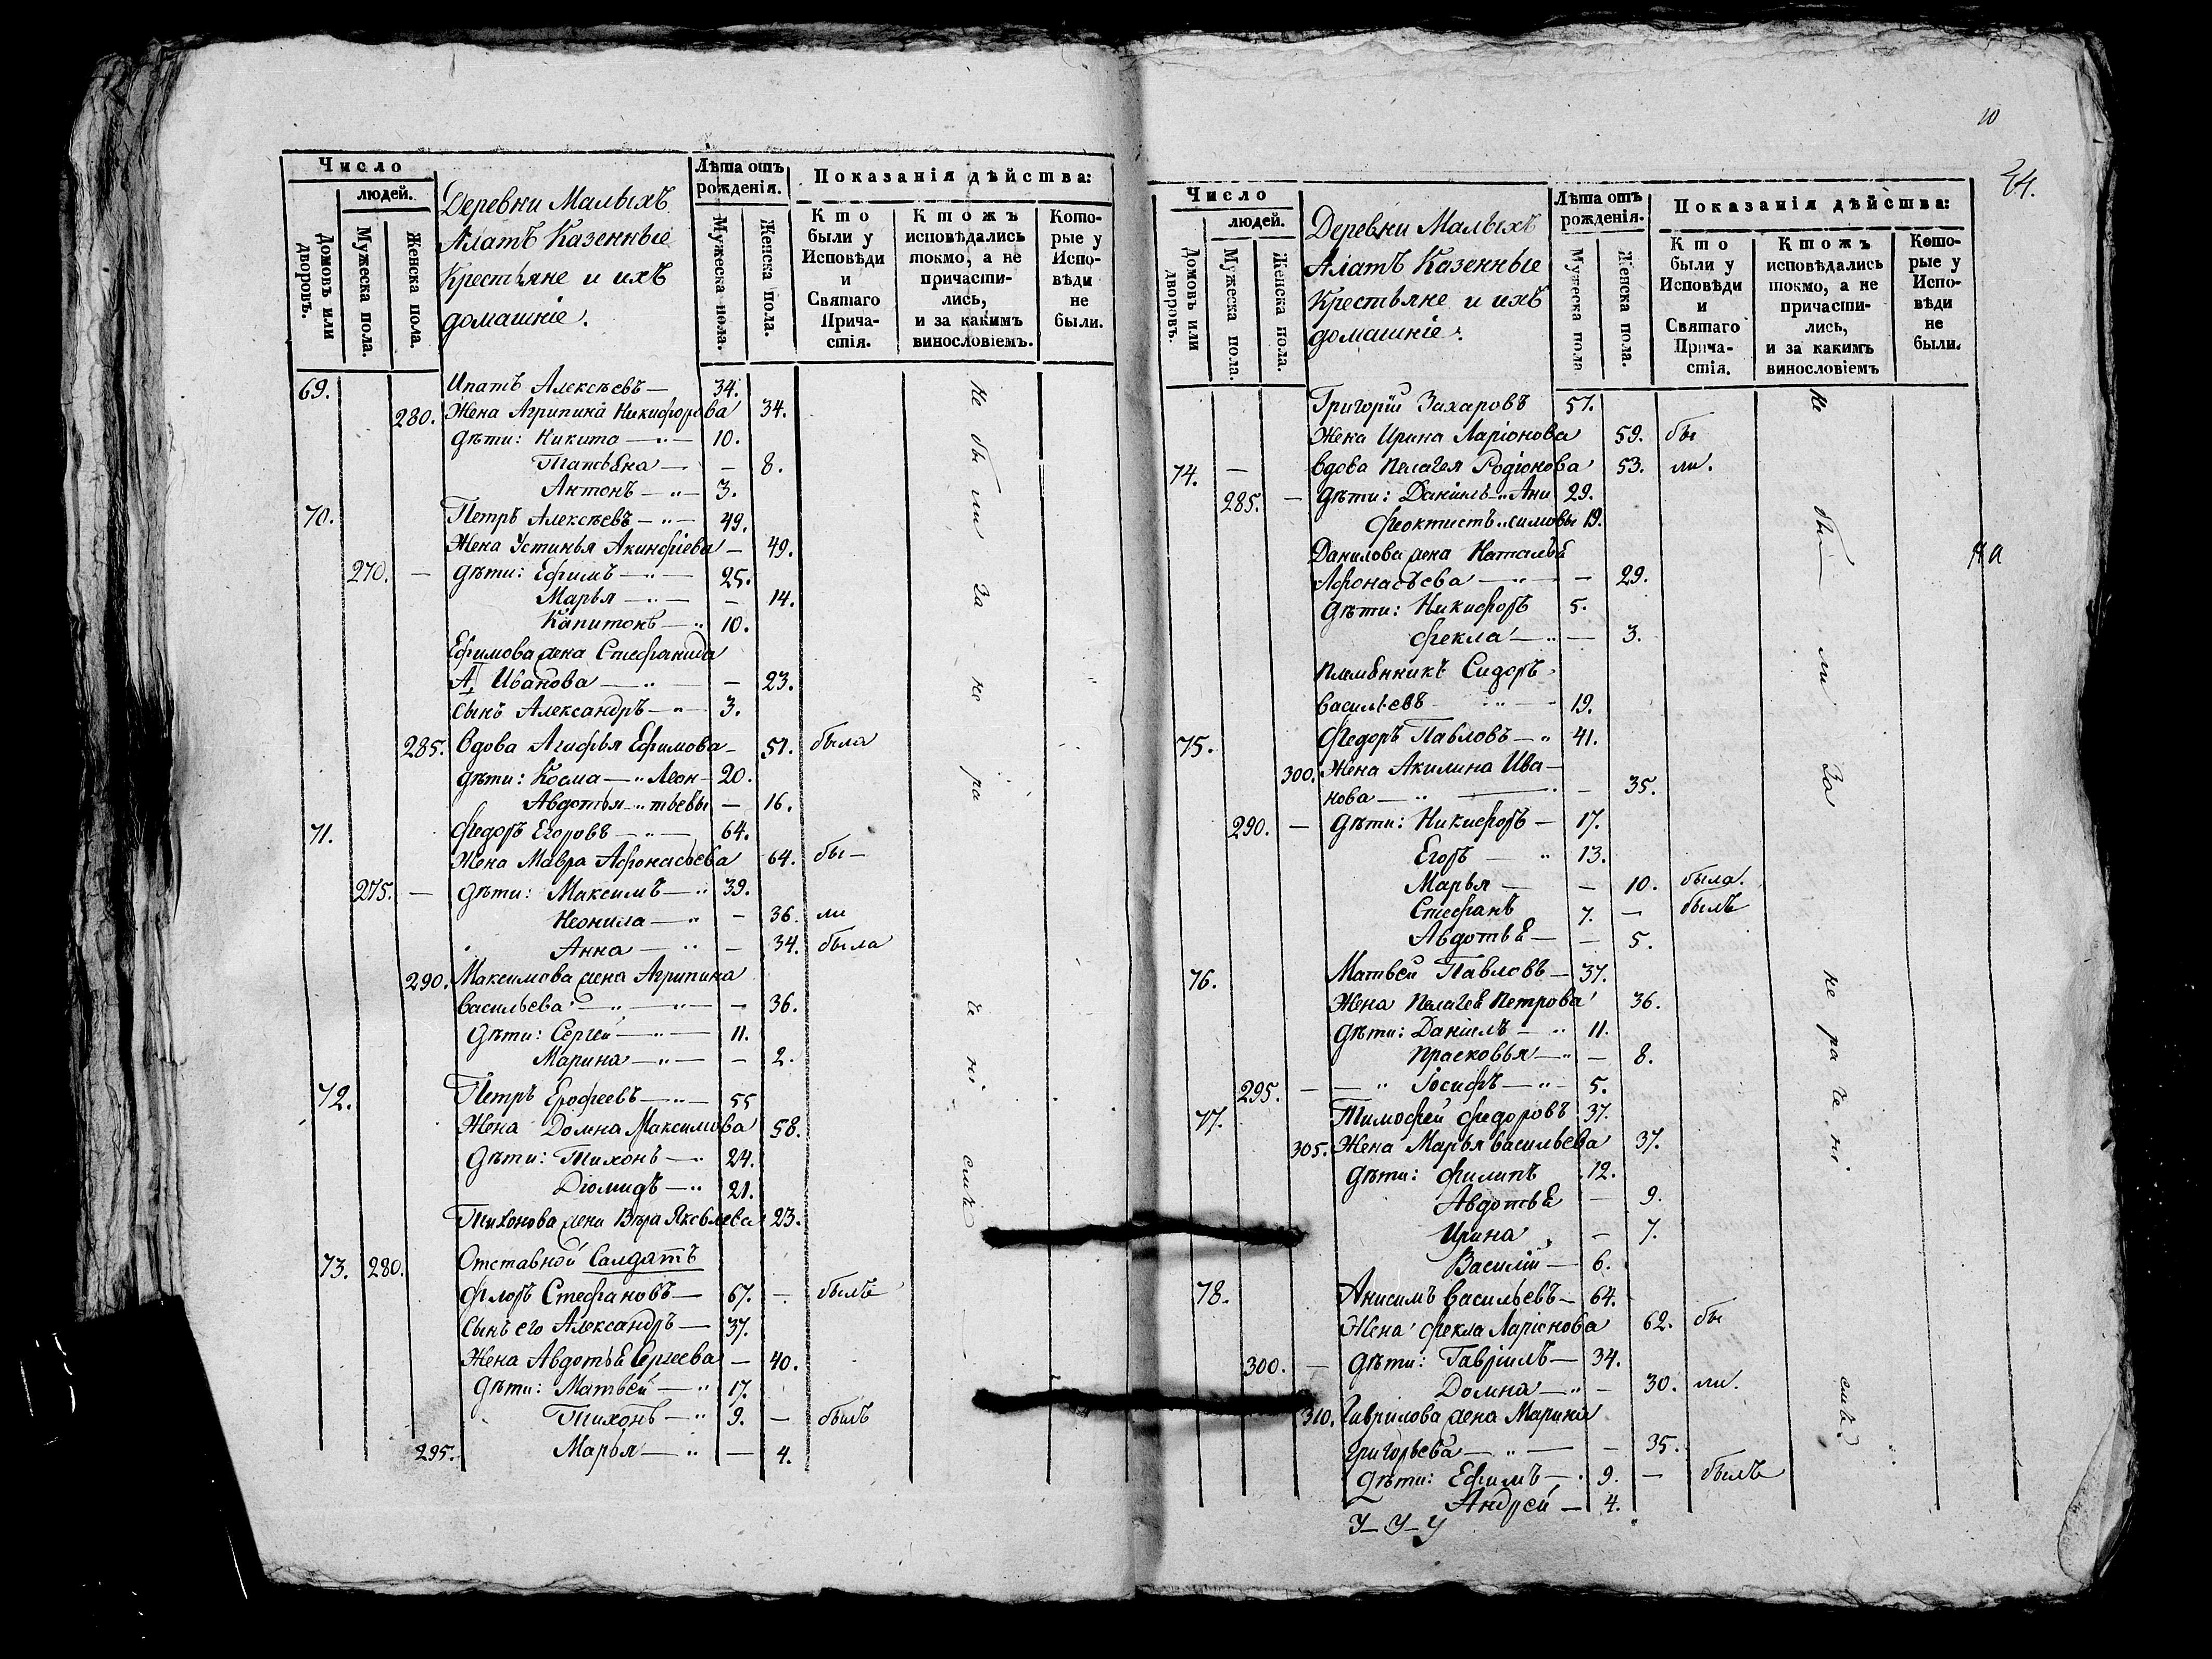 Число
людей.
Домовъ или дворовъ.
Мужеска пола.
Женска пола.
Деревни Малыхъ
Алатъ Казенные
Крестьяне и ихъ
домашніе.
Лѣта отъ рожденія.
Мужеска пола.
Женска пола.
Показанія дѣйства:
Кто были у Исповѣди и Святаго Причастія.
Ктожъ исповѣдались токмо, а не причастились, и за какимъ винословіемъ.
Которые у Исповѣди не были.
69. Ипатъ Алексѣевъ — 34.
280. Жена Агрипина Никифорова 34.
дѣти: Никита — 10.
Татьяна — — 8.
Антонъ — 3.
70. Петръ Алексѣевъ — 49.
Жена Устинья Акинфіева — 49.
270. — дѣти: Ефимъ — 25.
Марья — — 14.
Капитонъ — 10.
Ефимова жена Стефанида
Иванова — — 23.
сынъ Александръ — 3.
285. Вдова Агафья Ефимова — 51. была
дѣти: Косма — Леон- 20.
Авдотья тьевы — 16.
71. Федоръ Егоровъ — 64.
Жена Мавра Афонасьева 64. бы-
275. — дѣти: Максимъ — 39.
Неонила — — 36. ли
Анна — — 34. была
290. Максимова жена Агрипина
Васильева — — 36.
дѣти: Сергей — 11.
Марина — — 2.
72. Петръ Ерофеевъ — 55
Жена Домна Максимова 58.
дѣти: Тихонъ — 24.
Діомидъ — 21.
Тихонова жена Вѣра Яковлева 23.
73. 280. Отставной Салдатъ
Флоръ Стефановъ — 67. — былъ
Сынъ его Александръ — 37.
Жена Авдотья Сергеева — 40.
дѣти: Матвей — 17.
Тихонъ — 9. — былъ
295. Марья — — 4.
Не бы ли За не ра че ні емъ
10
64.
Число
людей.
Домовъ или дворовъ.
Мужеска пола.
Женска пола.
Деревни Малыхъ
Алатъ Казенные
Крестьяне и ихъ
домашніе.
Лѣта отъ рожденія.
Мужеска пола
Женска пола.
Показанія дѣйства:
Кто были у Исповѣди и Святаго Причастія.
Ктожъ исповѣдались токмо, а не причастились, и за какимъ винословіемъ
Которые у Исповѣди не были.
Григорій Захаровъ 57.
Жена Ирина Ларіонова 59. бы
74. — Вдова Пелагея Родіонова 53. ли.
285. — дѣти: Даніилъ Ани 29.
Феоктистъ симовы 19.
Данилова жена Наталья
Афонасьева — — 29.
дѣти: Никифоръ 5.
Фекла — — 3.
племянникъ Сидоръ
Васильевъ — 19.
75. Федоръ Павловъ — 41.
300. Жена Акилина Ива-
нова — — 35.
290. — дѣти: Никифоръ — 17.
Егоръ — 13.
Марья — — 10. была.
Стефанъ 7. — былъ
Авдотья — — 5.
76. Матвей Павловъ — 37.
Жена Пелагея Петрова 36.
дѣти: Даніилъ — 11.
Прасковья — — 8.
295. — — Іосифъ — 5.
77. Тимофей Федоровъ 37.
305. Жена Марья Васильева 37.
дѣти: Филипъ 12.
Авдотья — 9.
Ирина — 7.
Василій — 6.
78. Анисимъ Васильевъ — 64.
Жена Фекла Ларіонова 62. бы
300. — дѣти: Гавріилъ — 34.
Домна — — 30. ли.
310. Гаврилова жена Марина
Григорьева — — 35.
дѣти: Ефимъ — 9. — былъ
Андрей — 4.
Не бы — ли За не ра че ні емъ